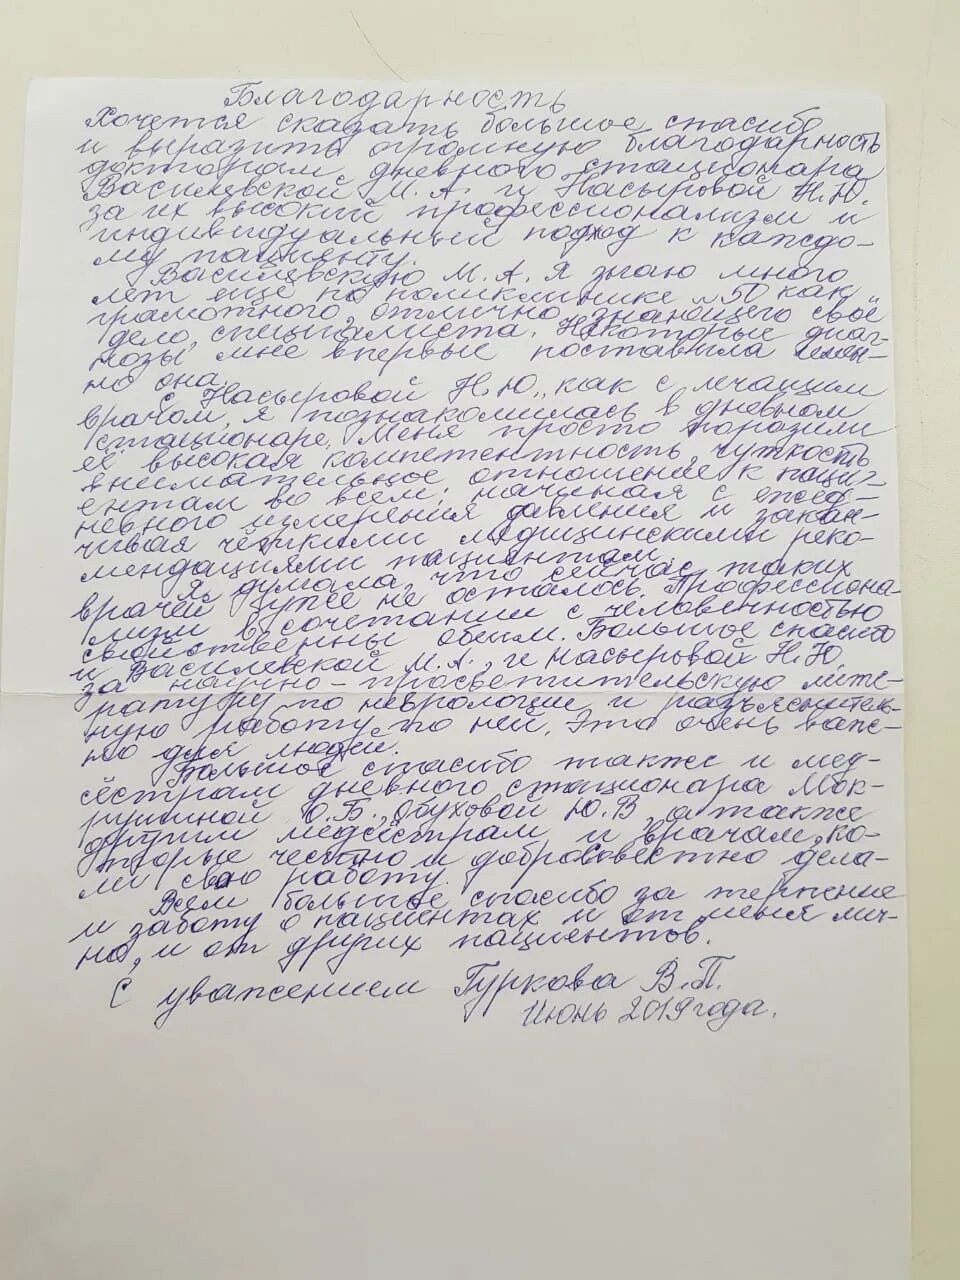 Благодарность
Хочется сказать большое спасибо
и выразить огромную благодарность
докторам дневного стационара
Василевской М. А. и Насыровой Н.Ю.
за их высокий профессионализм и
индивидуальный подход к каждо-
му пациенту.
Василевскую М. А. я знаю много
лет ещё по поликлинике №50 как
грамотного, отлично знающего своё
дело, специалиста. Некоторые диаг-
нозы мне впервые поставила имен-
но она.
С Насыровой Н.Ю., как с лечащим
врачом, я познакомилась в дневном
стационаре. Меня просто поразили
её высокая компетентность, чуткость
внимательное отношение к паци-
ентам во всём, начиная с ежед-
невного измерения давления и закан-
чивая чёткими медицинскими реко-
мендациями пациентам.
Я думала, что сейчас таких
врачей уже не осталось. Профессиона-
лизм в сочетании с человечностью
свойственны обеим. Большое спасибо
и Василевской М.А., и Насыровой Н.Ю.
за научно-просветительскую лите-
ратуру по неврологии и разъяснитель-
ную работу по ней. Это очень важ-
но для людей.
Большое спасибо также и мед-
сёстрам дневного стационара Мок-
рушиной О.Б., Обуховой Ю.В, а также
другим медсёстрам и врачам, ко-
торые честно и добросовестно дела-
ли свою работу.
Всем большое спасибо за терпение
и заботу о пациентах и от меня лич-
но, и от других пациентов.
С уважением Гуркова В.П.
Июнь 2019 года.